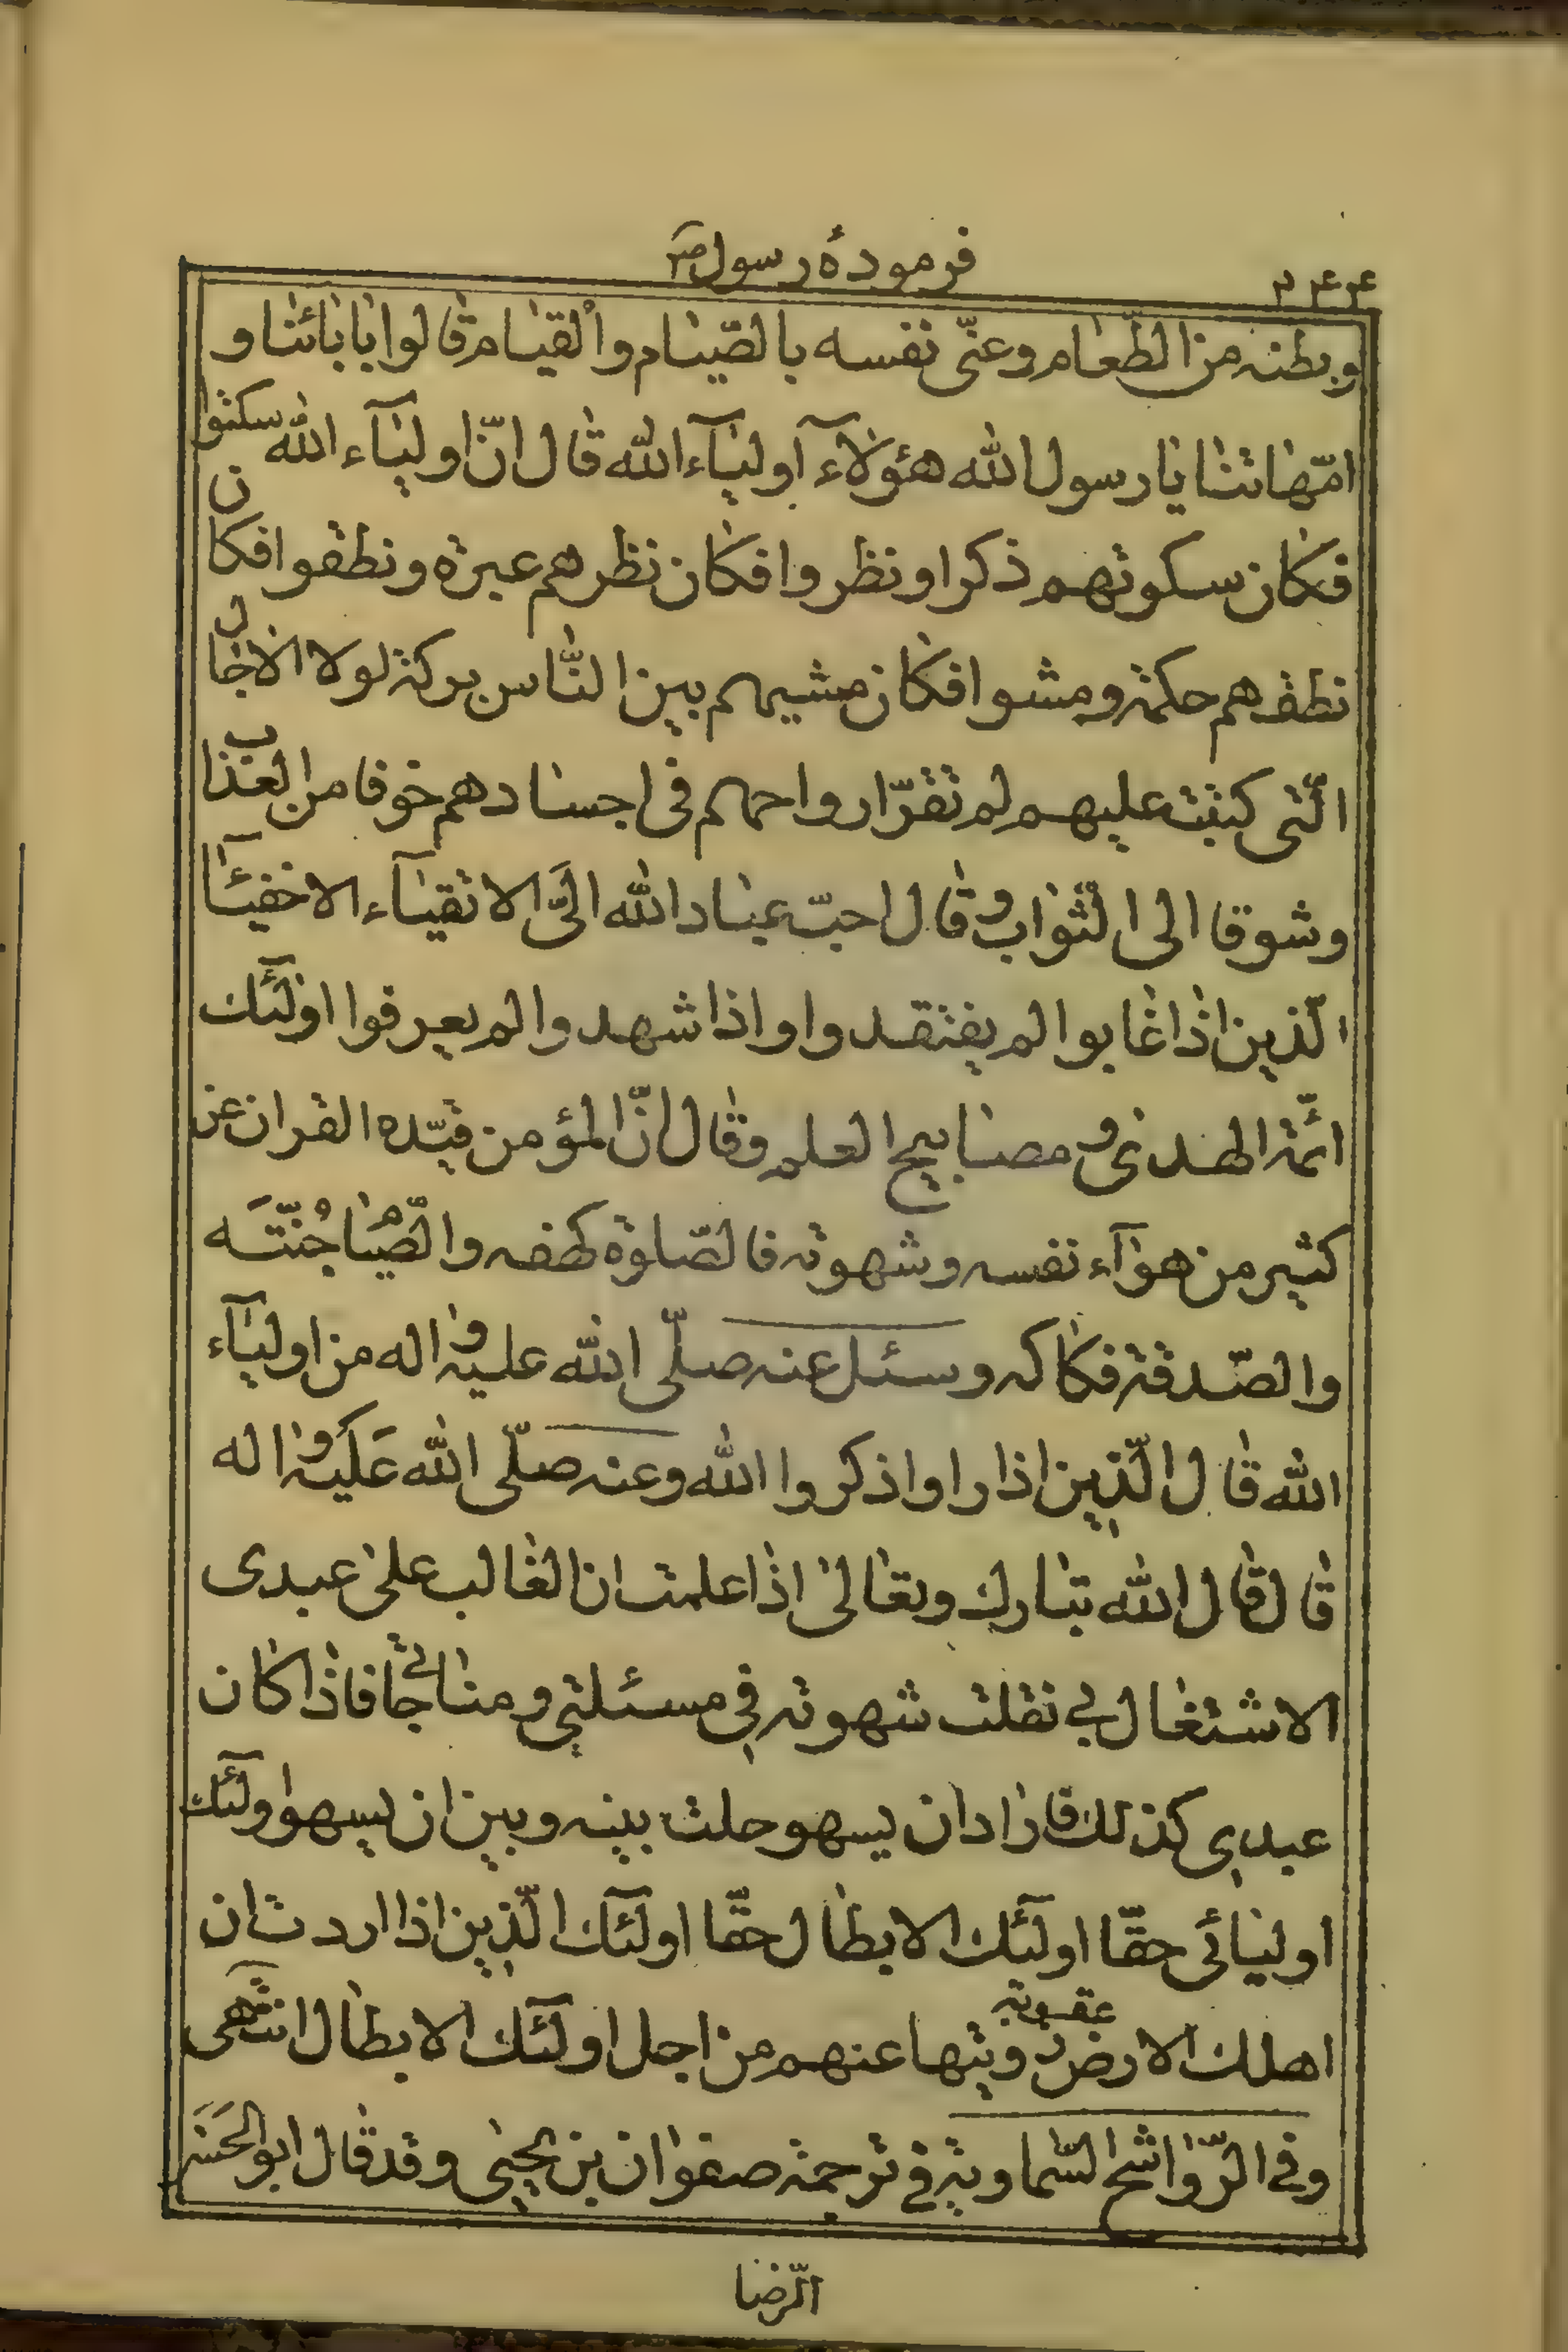 فرمودهٔ رسول ص
۲۴۴
و بطنه من الطّعام و عنّی نفسه بالصّیام و القیام قالوا بابائنا و
امّهاتنا یا رسول الله هؤلآء اولیآء الله قال انّ اولیآء الله سکتوا
فکان سکوتهم ذکرا و نظروا فکان نظرهم عبرة و نطقوا فکان
نطقهم حکمة و مشوا فکان مشیهم بین النّاس برکة لولا الاجال
الّتی کتبت علیهم لم تقرّ ارواحهم فی اجسادهم خوفا من العذاب
و شوقا الی الثّواب و قال احبّ عباد الله الیّ الاتقیآء الاخفیآء
الّذین اذا غابوا لم یفتقدوا و اذا شهدوا لم یعرفوا اولٓئک
ائمّة الهدی و مصابیح العلم و قال انّ المؤمن قیّده القران عن
کثیر من هوآء نفسه و شهوته فالصّلوة کهفه و الصّیام جُنّتَه
و الصّدقة فکاکه و سئل عنه صلّی الله علیه و اله من اولیآء
الله قال الّذین اذا راوا ذکروا الله و عنه صلّی الله عَلَیه و اله
قال قال الله تبارک و تعالی اذا علمت ان الغالب علی عبدی
الاشتغال بی نقلت شهوته فی مسئلتی و مناجاتی فاذا کان
عبدی کذلک فاراد ان یسهو حلت بینه و بین ان یسهو اولٓئک
اولیائی حقّا اولٓئک الابطال حقّا اولٓئک الّذین اذا اردت ان
اهلک الارض عقوبة زویتها عنهم من اجل اولٓئک الابطال انتهی
و فی الرّواشح السّماویة فی ترجمة صفوان بن یحیی و قد قال ابو الحَسَن
الرّضا